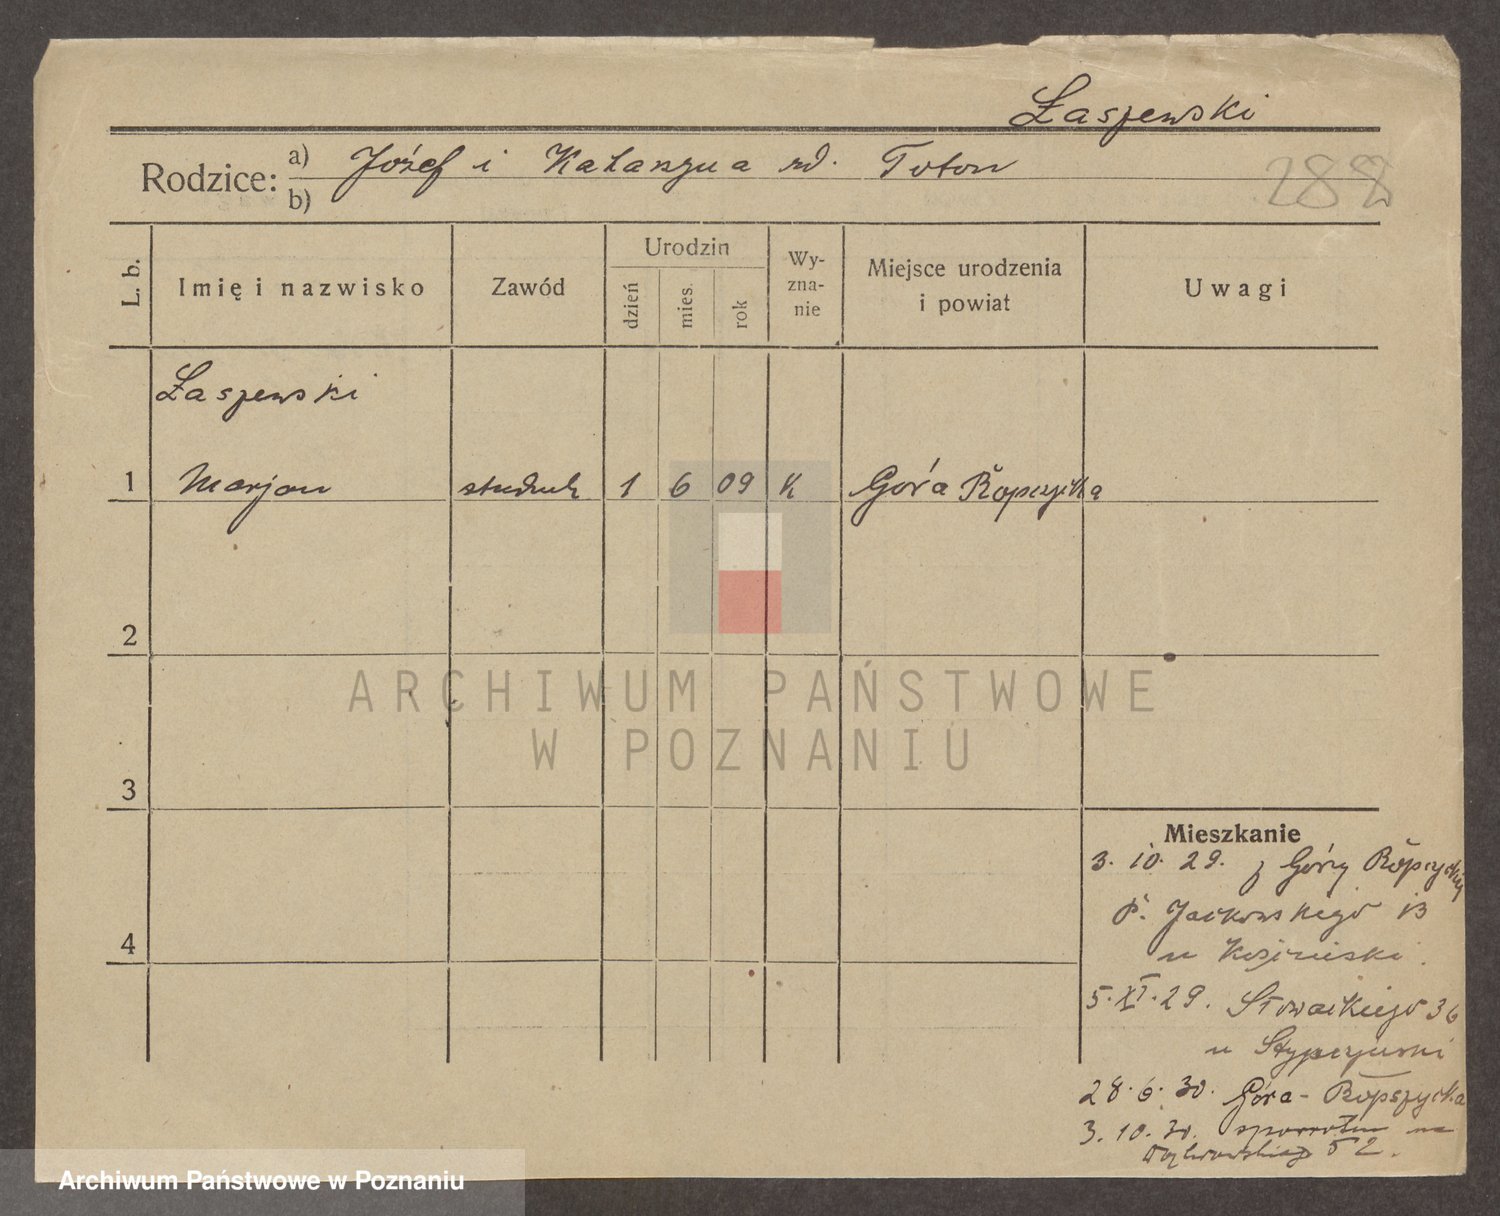 Łaszewski
Rodzice: a) Józef i Katarzyna zd. Toton
b)
288
L. b.
Imię i nazwisko
Zawód
Urodzin
dzień
mies.
rok
Wy-
zna-
nie
Miejsce urodzenia
i powiat
Uwagi
Łaszewski
1 Marjan student 1 6 09 K Góra Ropczycka
2
3
4
Mieszkanie
3. 10. 29. z Góry Ropczyckiej
P. Jackowskiego 13
u
5. XI. 29. Słowackiego 36
u
28. 6. 30. Góra - Ropszycka
3. 10. 30. spowrotem na
52.
ARCHIWUM PAŃSTWOWE
W POZNANIU
Archiwum Państwowe w Poznaniu